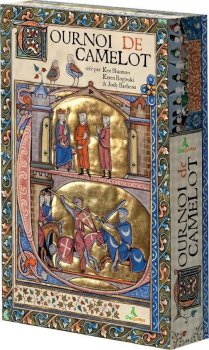 TOURNOI DE
CAMELOT
créé par Ken Shannon
Karen Boginski
& Jody Barbessi
TOURNOI DE
CAMELOT